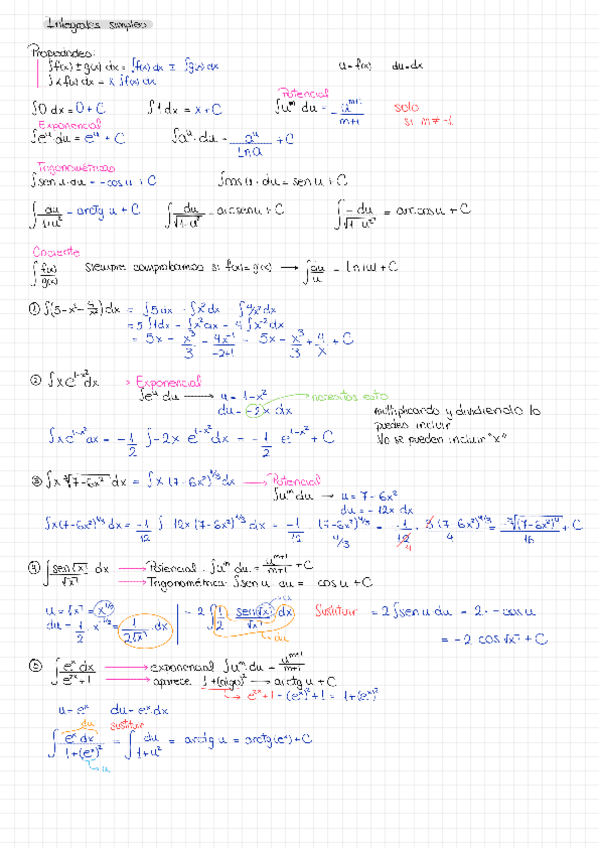 Integrales simples
Propiedades:
∫f(x) ± g(x) dx = ∫f(x) dx ± ∫g(x) dx    u = f(x)    du = dx
∫k f(x) dx = k ∫f(x) dx
Potencial
∫0 dx = 0 + C    ∫1 dx = x + C    ∫u^m du = u^(m+1)/(m+1)    solo si m ≠ -1
Exponencial
∫e^u · du = e^u + C    ∫a^u · du = a^u/Ln a + C
Trigonométricas
∫sen u · du = -cos u + C    ∫cos u · du = sen u + C
∫du/(1+u²) = arctg u + C    ∫du/√(1-u²) = arcsen u + C    ∫-du/√(1-u²) = arccos u + C
Cociente
∫f(x)/g(x)    Siempre comprobamos si f(x) = g'(x) → ∫du/u = Ln |u| + C
① ∫(5 - x² - 4/x²) dx = ∫5 dx - ∫x² dx - ∫4/x² dx
= 5 ∫1 dx - ∫x² dx - 4 ∫x^-2 dx
= 5x - x³/3 - 4x^-1/(-2+1) = 5x - x³/3 + 4/x + C
② ∫x e^(1-x²) dx → Exponencial
∫e^u du → u = 1 - x² → necesitas esto
du = -2x dx
multiplicando y dividiendo lo
puedes incluir
No se pueden incluir "x"
∫x e^(1-x²) dx = -1/2 ∫-2x e^(1-x²) dx = -1/2 e^(1-x²) + C
③ ∫x ∛(7-6x²) dx = ∫x (7-6x²)^(1/3) dx → Potencial
∫u^m du → u = 7 - 6x²
du = -12x dx
∫x(7-6x²)^(1/3) dx = -1/12 ∫ 12x (7-6x²)^(1/3) dx = -1/12 · (7-6x²)^(4/3)/(4/3) = -1/12 · 3(7-6x²)^(4/3)/4 = -∛(7-6x²)^4/16 + C
④ ∫sen(√x)/√x dx → Potencial · ∫u^m du = u^(m+1)/(m+1) + C
→ Trigonométrica · ∫sen u du = cos u + C
u = √x = x^(1/2)
du = 1/2 x^(-1/2) = 1/(2√x) dx
= 2 ∫ 1/2 sen(√x)/√x dx    Sustituir = 2 ∫sen u du = 2 · -cos u
u
du
= -2 cos √x + C
⑤ ∫e^x dx/(e^2x + 1) → exponencial ∫u^m du = u^(m+1)/(m+1)
→ aparece 1 + (algo)² → arctg u + C
→ e^2x + 1 = (e^x)² + 1 = 1 + (e^x)²
u = e^x    du = e^x dx
du    sustituir
∫e^x dx/(1+(e^x)²) = ∫du/(1+u²) = arctg u = arctg(e^x) + C
u